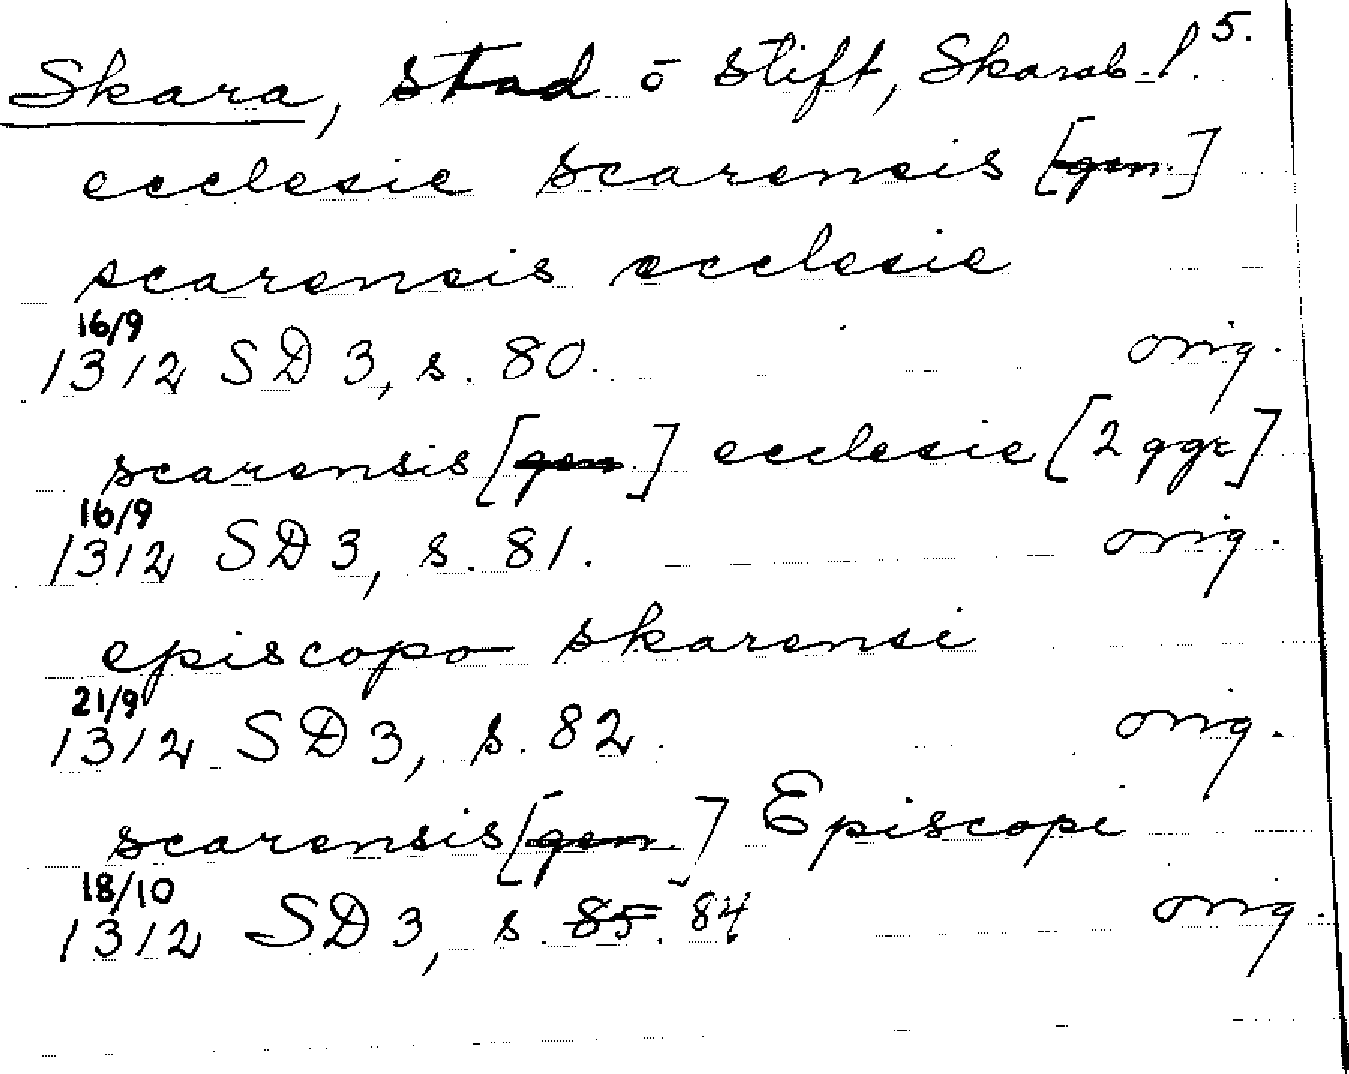 Skara, stad o stift, Skarab. l. 5.
ecclesie scarensis [gen.]
scarensis ecclesie
16/9
1312 SD 3, s. 80. orig.
scarensis [gen] ecclesie [2 ggr]
16/9
1312 SD 3, s. 81. orig.
episcopo skarensi
21/9
1312 SD 3, s. 82. orig.
scarensis [gen.] Episcopi
18/10
1312 SD 3, s. 85. 84 orig.